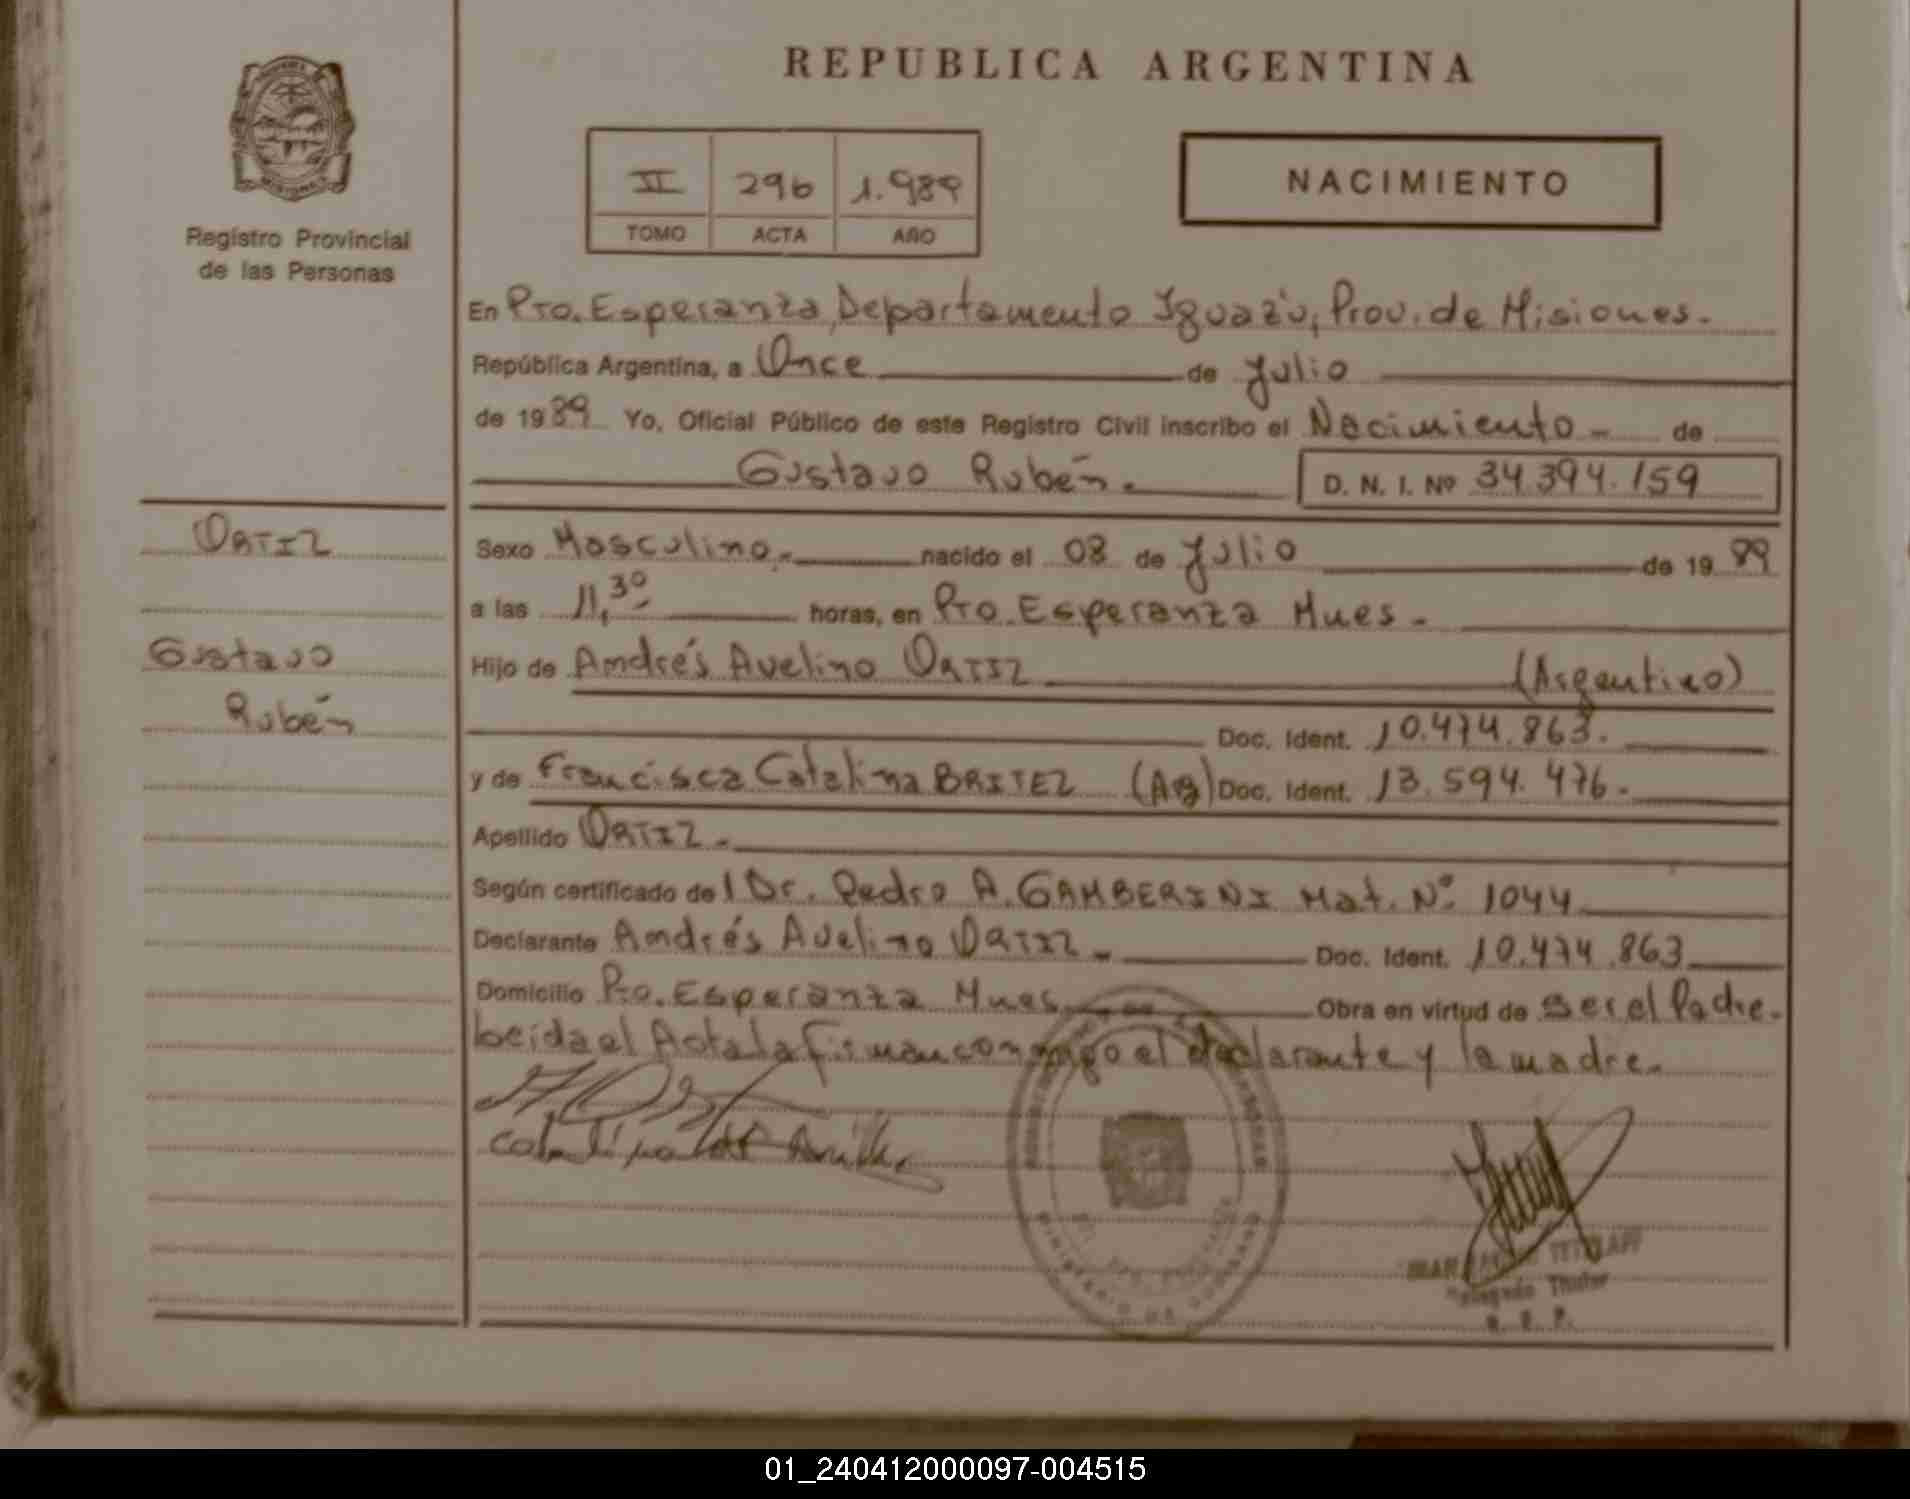 REPUBLICA ARGENTINA
Registro Provincial
de las Personas
II 296 1.989
TOMO ACTA AÑO
NACIMIENTO
En Pto. Esperanza, Departamento Iguazú, Prov. de Misiones.
República Argentina, a Once de Julio
de 1989 Yo, Oficial Público de este Registro Civil inscribo el Nacimiento - de
Gustavo Rubén. D. N. I. Nº 34.394.159
ORTIZ
Gustavo
Rubén
Sexo Masculino. nacido el 08 de Julio de 1989
a las 11,30 horas, en Pto. Esperanza Mnes.
Hijo de Andrés Avelino ORTIZ (Argentino)
Doc. Ident. 10.474.863.
y de Francisca Catalina BRITEZ (Arg) Doc. Ident. 13.594.476.
Apellido ORTIZ.
Según certificado del Dr. Pedro A. GAMBERINI Mat. Nº 1044
Declarante Andrés Avelino ORTIZ. Doc. Ident. 10.474.863
Domicilio Pto. Esperanza Mnes. Obra en virtud de ser el Padre.
Leida el Acta la firman conmigo el declarante y la madre.
MINISTERIO DE GOBIERNO
Delegado Titular
R. P. P.
01_240412000097-004515